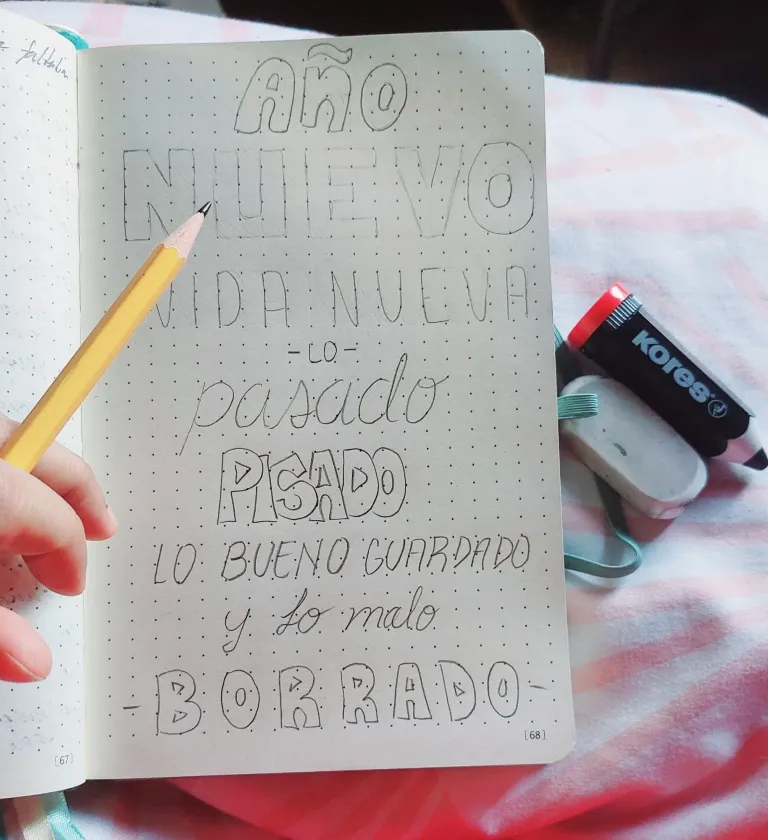 AÑO
NUEVO
VIDA NUEVA
-LO-
pasado
PISADO
LO BUENO GUARDADO
y lo malo
-BORRADO-
[67]
[68]
KORES